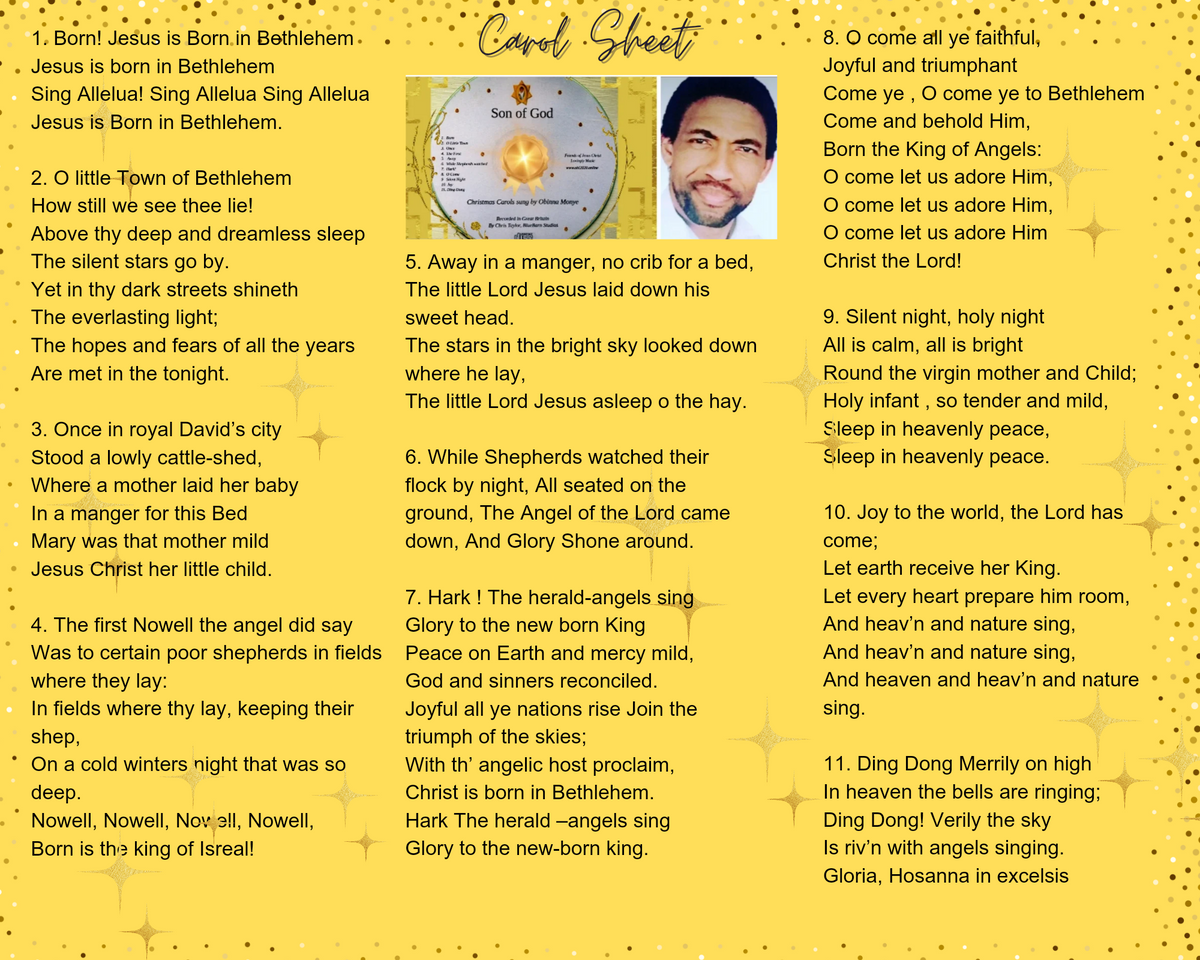 Carol Sheet
1. Born! Jesus is Born in Bethlehem
Jesus is born in Bethlehem
Sing Allelua! Sing Allelua Sing Allelua
Jesus is Born in Bethlehem.
2. O little Town of Bethlehem
How still we see thee lie!
Above thy deep and dreamless sleep
The silent stars go by.
Yet in thy dark streets shineth
The everlasting light;
The hopes and fears of all the years
Are met in the tonight.
3. Once in royal David's city
Stood a lowly cattle-shed,
Where a mother laid her baby
In a manger for this Bed
Mary was that mother mild
Jesus Christ her little child.
4. The first Nowell the angel did say
Was to certain poor shepherds in fields
where they lay:
In fields where thy lay, keeping their
shep,
On a cold winters night that was so
deep.
Nowell, Nowell, Nowell, Nowell,
Born is the king of Isreal!
Son of God
1. Born
2. O Little Town
3. Once
Friends of Jesus Christ
Christmas Carols sung by Obinna Monye
Recorded in Great Britain
5. Away in a manger, no crib for a bed,
The little Lord Jesus laid down his
sweet head.
The stars in the bright sky looked down
where he lay,
The little Lord Jesus asleep o the hay.
6. While Shepherds watched their
flock by night, All seated on the
ground, The Angel of the Lord came
down, And Glory Shone around.
7. Hark ! The herald-angels sing
Glory to the new born King
Peace on Earth and mercy mild,
God and sinners reconciled.
Joyful all ye nations rise Join the
triumph of the skies;
With th' angelic host proclaim,
Christ is born in Bethlehem.
Hark The herald –angels sing
Glory to the new-born king.
8. O come all ye faithful,
Joyful and triumphant
Come ye , O come ye to Bethlehem
Come and behold Him,
Born the King of Angels:
O come let us adore Him,
O come let us adore Him,
O come let us adore Him
Christ the Lord!
9. Silent night, holy night
All is calm, all is bright
Round the virgin mother and Child;
Holy infant , so tender and mild,
Sleep in heavenly peace,
Sleep in heavenly peace.
10. Joy to the world, the Lord has
come;
Let earth receive her King.
Let every heart prepare him room,
And heav'n and nature sing,
And heav'n and nature sing,
And heaven and heav'n and nature
sing.
11. Ding Dong Merrily on high
In heaven the bells are ringing;
Ding Dong! Verily the sky
Is riv'n with angels singing.
Gloria, Hosanna in excelsis